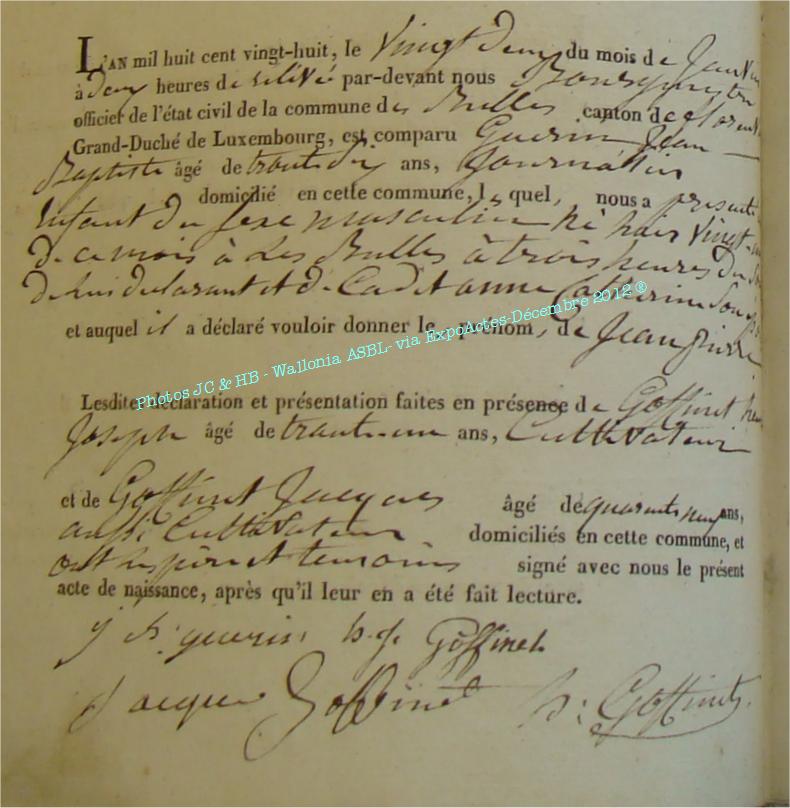 L'AN mil huit cent vingt-huit, le Vingt deux du mois de Janvier
à deux heures de relivé par-devant nous Bourgmestre
officier de l'état civil de la commune des Bulles canton de florenv
Grand-Duché de Luxembourg, est comparu Guerin Jean
Baptiste âgé de trante dix ans, Journalier
domicilié en cette commune, l quel, nous a presenté
Enfant du sexe masculin né hier Vingt
de ce mois à Les Bulles à trois heures du
de lui declarant et de Catherine
et auquel il a déclaré vouloir donner le prénom, de Jean pierre
Photos JC & HB - Wallonia ASBL- via ExpoActes-Décembre 2012 ®
Lesdites déclaration et présentation faites en présence de Goffinet
Joseph âgé de trante un ans, Cultivateur
et de Goffinet Jacques âgé de quarante neuf ans,
aussi Cultivateur domiciliés en cette commune, et
ont les père et temoins signé avec nous le présent
acte de naissance, après qu'il leur en a été fait lecture.
j Bt guerin h. j. Goffinet
Jacque Goffinet h: Goffinet